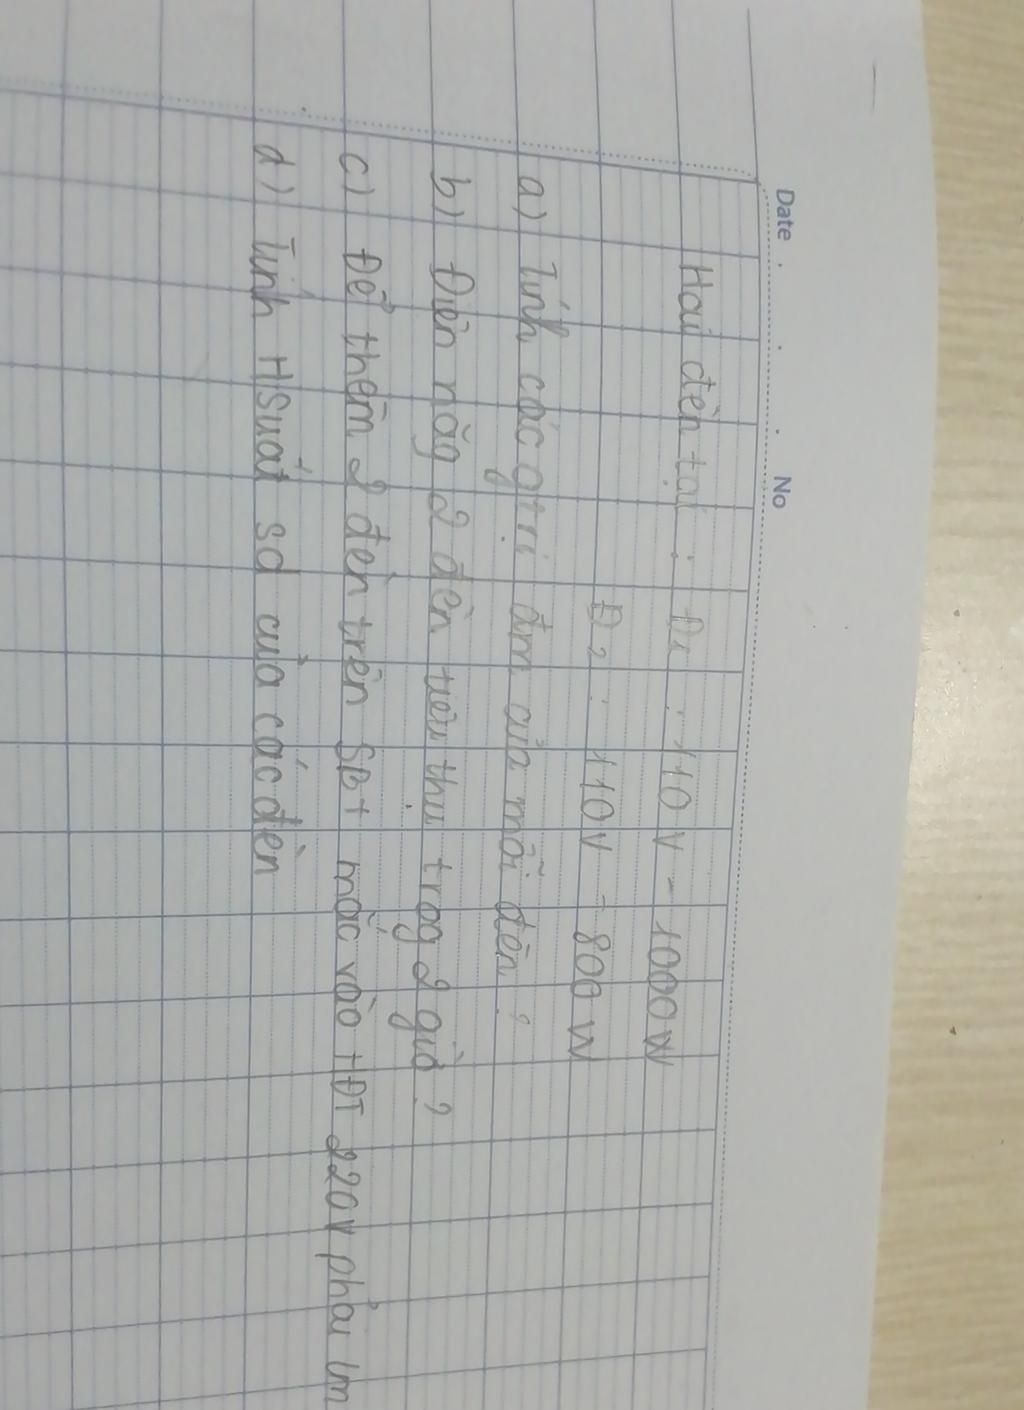 Date . . . No
Hai đèn tại : Đ1 : 110 V - 1000 W
Đ2 : 110 V - 800 W
a) Tính các gtrị đm của mỗi đèn ?
b) Điện năg 2 đèn tiêu thụ trog 2 giờ ?
c) Để thêm 2 đèn trên SBt mắc vào HĐT 220V phải lm
d) Tính HSuất sd của các đèn